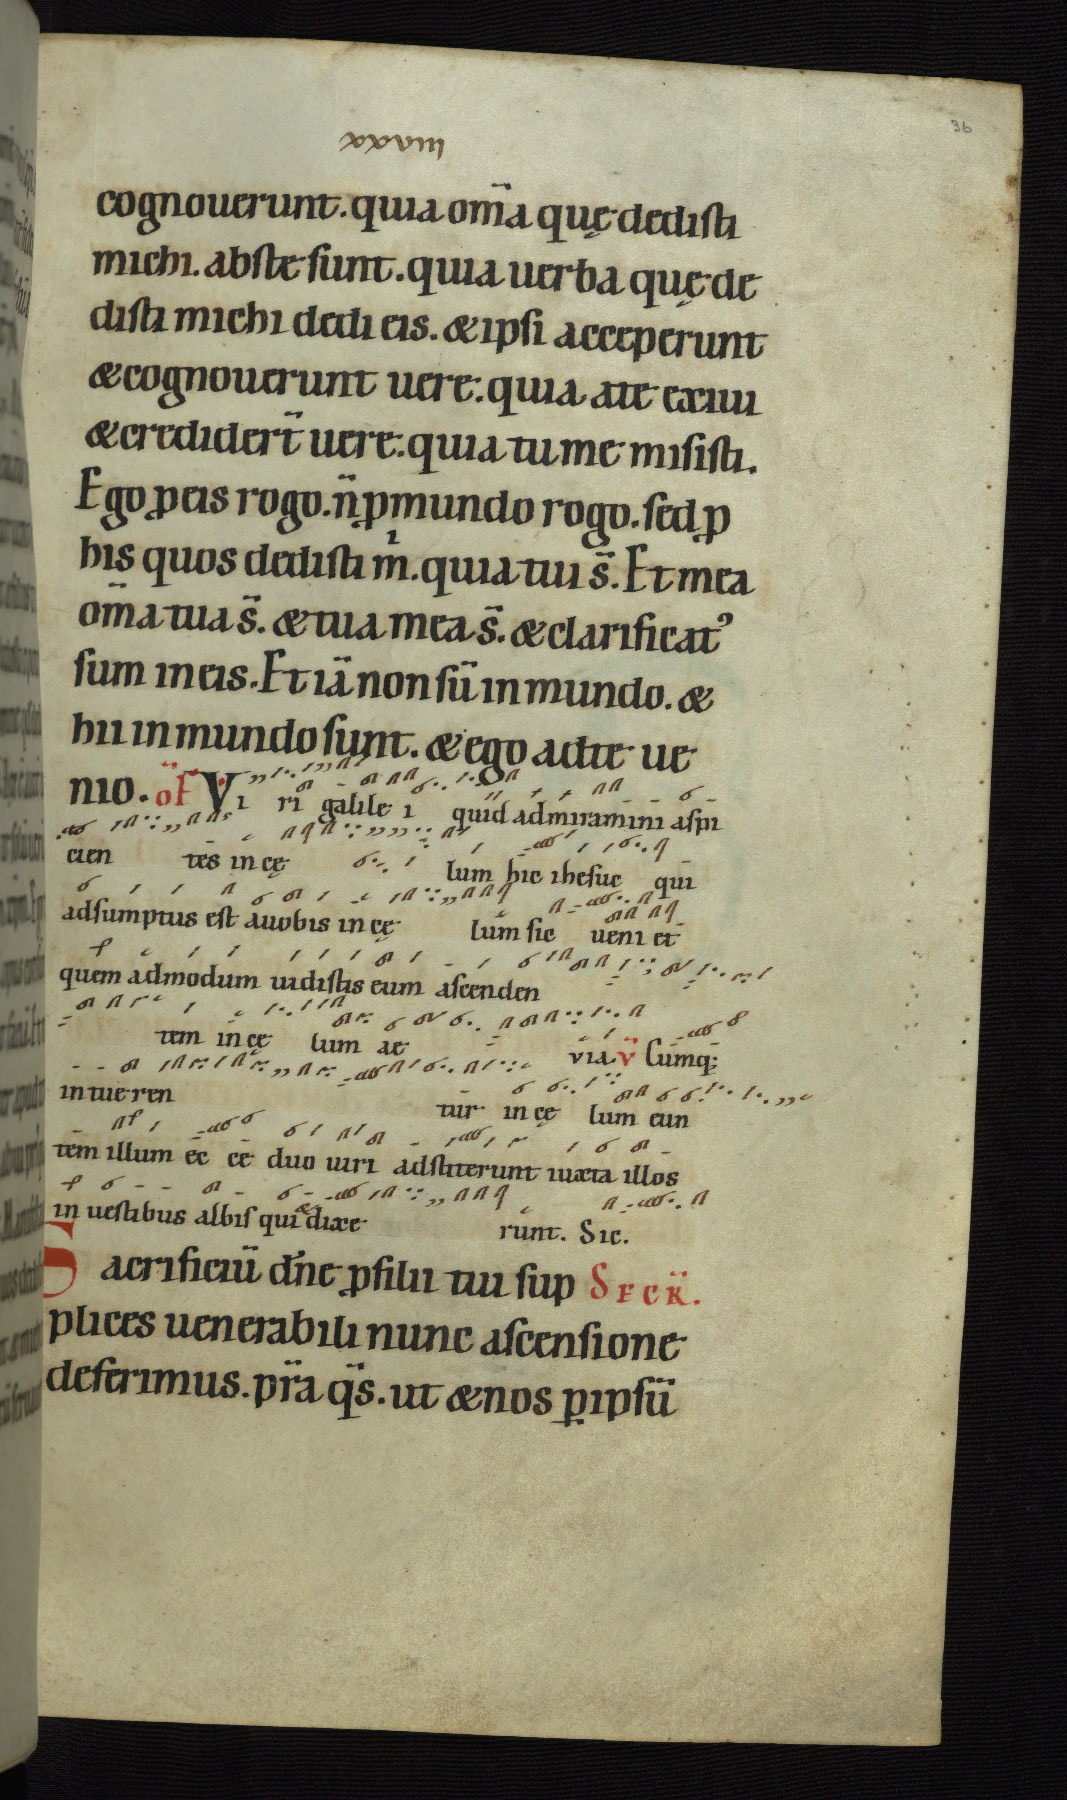 xxxviii
36
cognouerunt. quia om̄a quę dedisti
michi. abs te sunt. quia uerba quę de
disti michi dedi eis. & ipsi acceperunt
& cognouerunt uere. quia a te exiui
& credider̄t uere. quia tu me misisti.
Ego ꝓ eis rogo. n̄ ꝓ mundo rogo. sed ꝓ
his quos dedisti m̄. quia tui s̄. Et mea
om̄a tua s̄. & tua mea s̄. & clarificatꝰ
sum in eis. Et iā non sū in mundo. &
hii in mundo sunt. & ego ad te ue
nio. oF̄ Vi ri galile i quid admiramini aspi
cien tes in cę lum hic ihesuc qui
adsumptus est a uobis in cę lum sic ueni et
quem admodum uidistis eum ascenden
tem in cę lum ae via. v̄ Cumq;
intue ren tur in cę lum eun
tem illum ec ce duo uiri adstiterunt iuxta illos
in uestibus albis qui & dixe runt. Sic.
Sacrificiū dn̄e ꝓ filii tui sup Secr̄.
plices uenerabili nunc ascensione
deferimus. pr̄a qs̄. ut & nos ꝑ ipsū